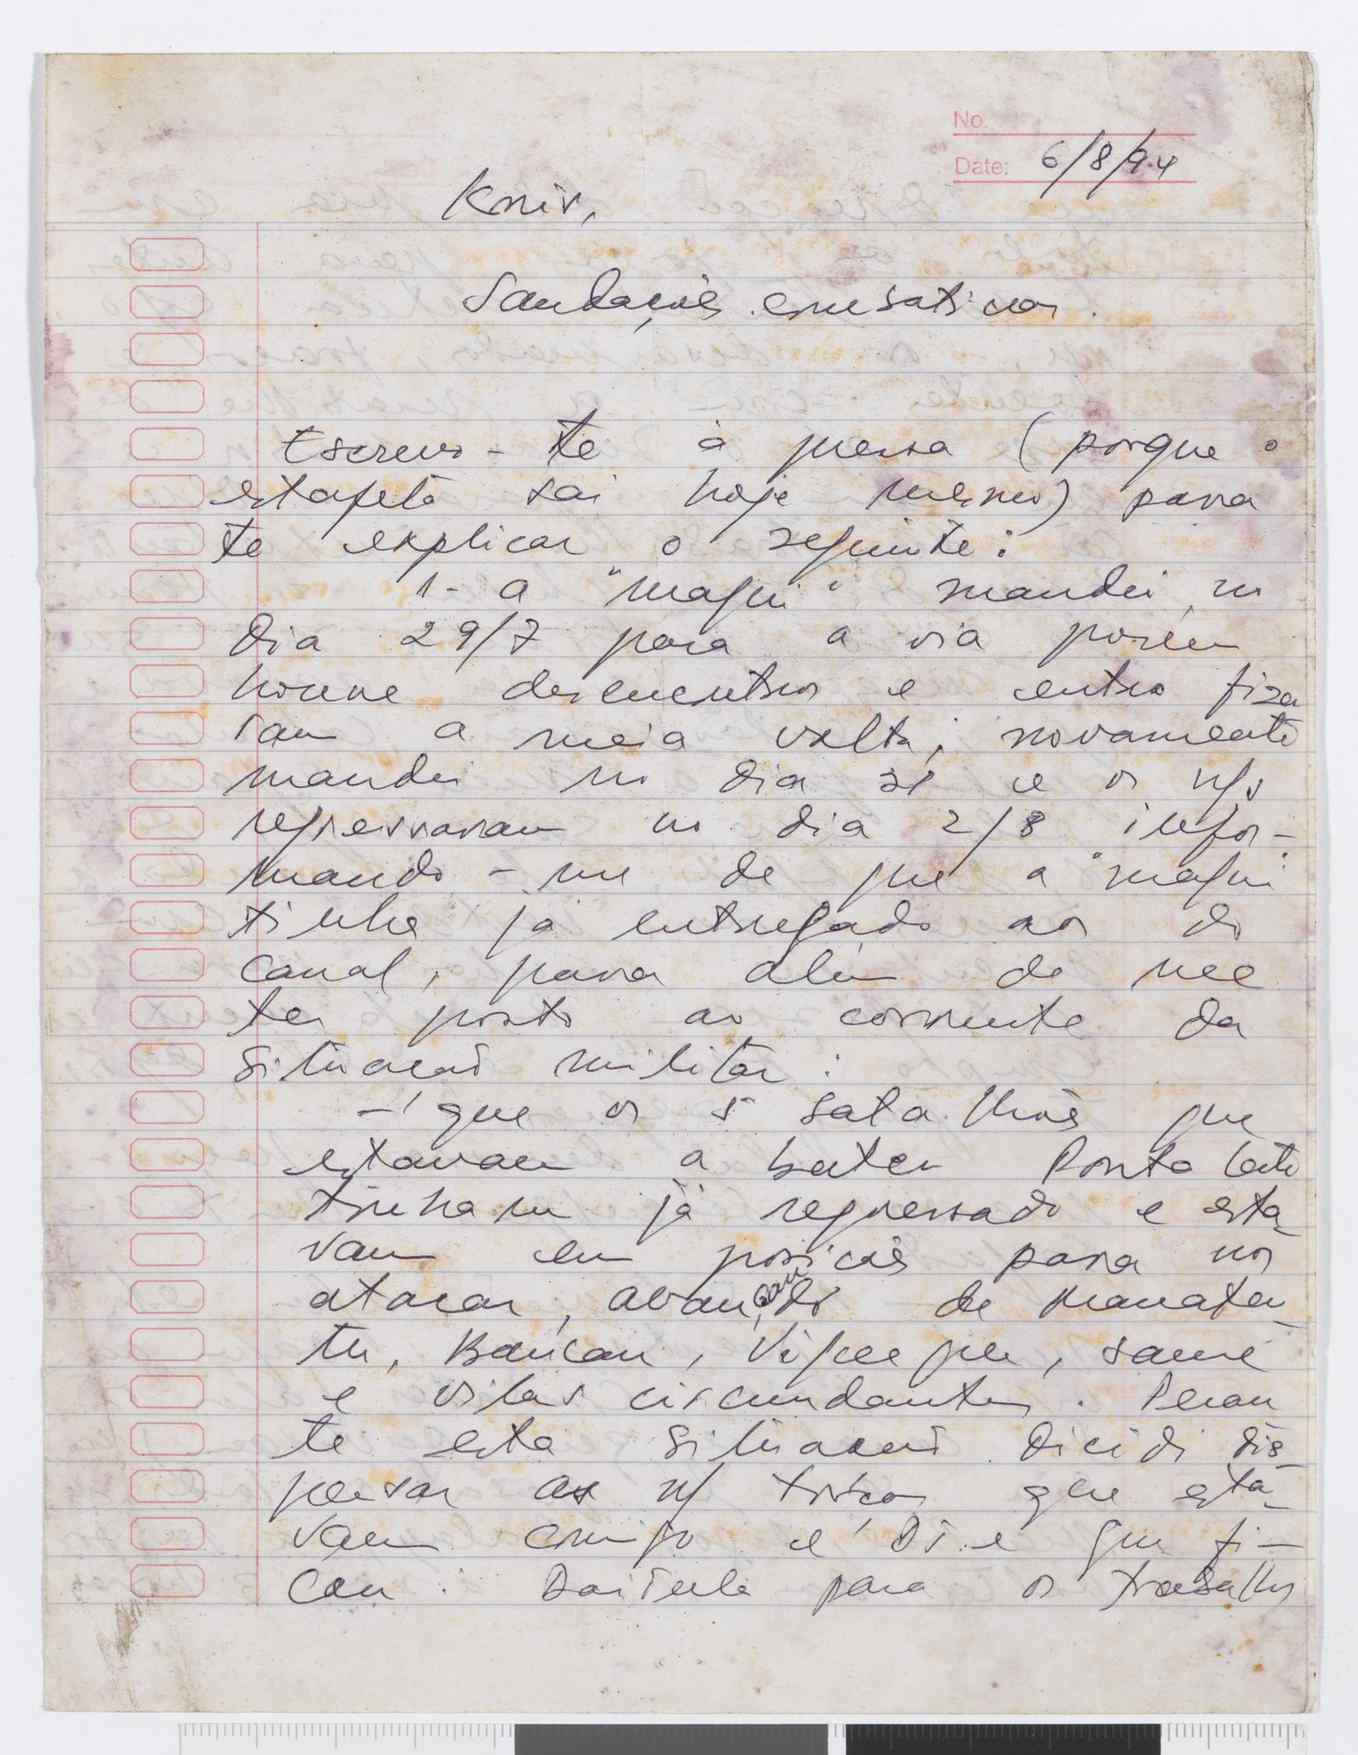 No.
Date: 6/8/94
Konis,
Saudações combativas.
Escrevo-te à pressa (porque o
estafeta sai hoje mesmo) para
te explicar o seguinte:
1- a "maqui" mandei no
dia 29/7 para a via porém
houve desencontros e então fize
ram a meia volta; novamente
mandei no dia 31 e os nfs
regressaram no dia 2/8 infor-
mando-me de que a "maqui"
tinha já entregado aos do
canal, para além de me
ter posto ao corrente da
situação militar:
- que os 5 batalhões que
estavam a bater Ponta Leste
tinham já regressado e esta
vam em posições para nos
atacar, avançando de Manatu
tu, Baucau, Viqueque, Same
e vilas circundantes. Peran
te esta situação dicidi dis
persar as n/ forças que esta-
vam comigo e que fi-
cou para os trabalhos